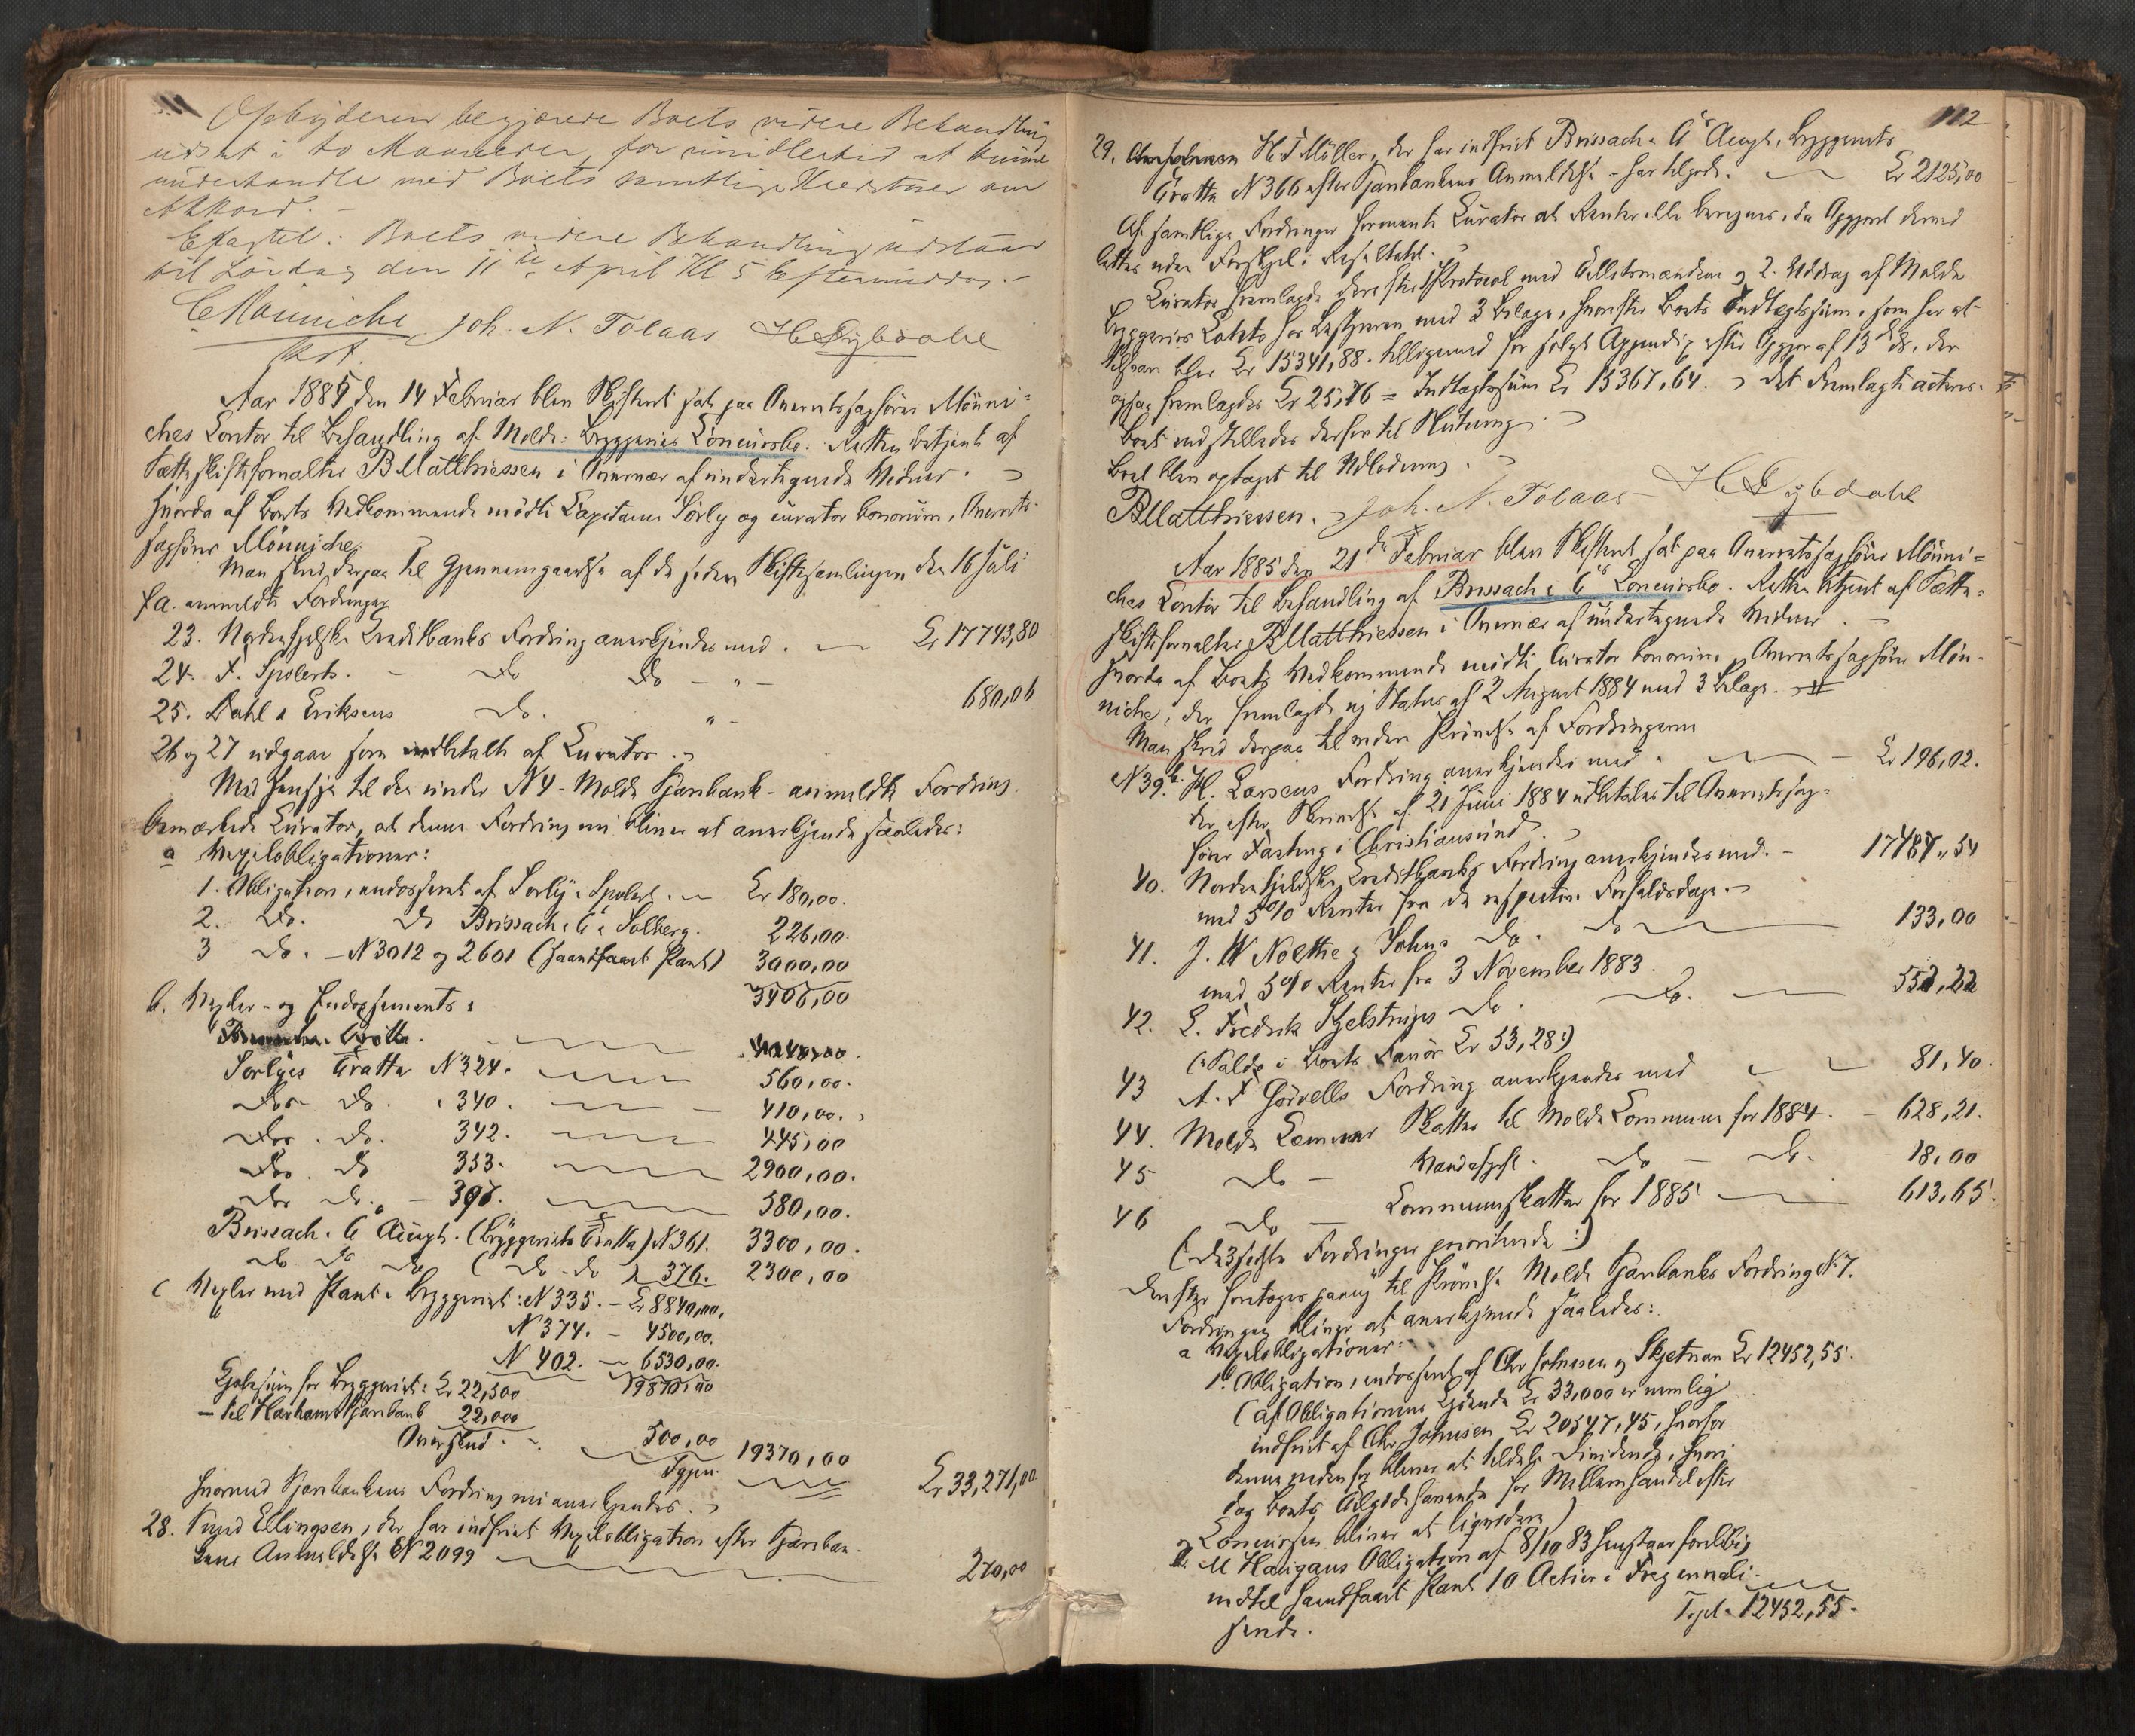 Opbyderen begjærede Boets videre Behandling
udsat i to Maaneder for imidlertid at kunne
underhandle med Boets samtlige Kreditorer om
Akkord. -
Eftertil: Boets videre Behandling udstaar
til Lördag den 11te April Kl 5 Eftermiddag. -
CMönniche Joh. N. Tolaas HDybdahl
kst.
Aar 1885 den 14 Februar blev Skifteret sat paa Overretssagförer Mönni=
ches Contor til Behandling af Molde Bryggeries Concursbo. Retten betjent af
Sætteskifteforvalter BMatthiessen i Overvær af undertegnede Vidner.
Hvorda af Boets Vedkommende mödte Capitain Sörly og curator bonorum, Overrets-
sagförer Mönniche.
Man skred derpaa til Gjennemgaaelse af de siden Skiftesamlingen den 16 Juli
f.a. anmeldte Fordringer
23. Nordenfjeldske Creditbanks Fordring anerkjendes med. Kr 17743,80
24. F. Spolerts. - Do Do - " - 680,06
25. Dahl & Eriksens Do. " -
26 og 27 udgaar som indbetalt af Curator.
Med Hensyn til den under N 4 - Molde Sparebank - anmeldte Fordring
bemærkede Curator, at denne Fordring nu bliver at anerkjende saaledes:
a Vexelobligationer:
1. Obligation, endosseret af Sörly & Spolert. Kr 180,00.
2. Do. Do Brissach & Co & Solberg. 226,00.
3 Do. - N 3012 og 2601 (haandfaaet Pant) 3000,00
3406,00
b. Vexler- og Endossements:
Sörlys Tratta N 324. 560,00.
Do. Do. " 340. 410,00.
Do. Do. 342. 445,00
Do. Do 353. 2900,00.
Do Do. - 580,00.
Brissach & Co Aeugh. (Bryggeriets Tratta) N 361. 3300,00.
Do Do Do (Do - Do) 376. 2300,00
c Vexler med Pant i Bryggeriet: N 335. - Kr 8840,00.
N 374. - 4500,00.
N 402. - 6530,00.
Kjøbesum for Bryggeriet: Kr 22,500 19870,00
- til Havnams Sparebank 22,000
Overskud. - 500,00 19370,00
Igjen. Kr 33,271,00
hvormed Sparebankens Fordring nu anerkjendes.
28. Knud Ellingsen, der har indfriet Vexelobligation efter Spareban-
kens Anmeldelse N 2099 270,00
112
29. H. F Möller, der har indfriet Brissach & Co's Aeugh. Bryggeriets
Tratta N 366 efter Sparebankens Anmeldelse - har tilgode. Kr 2125,00
Af samtlige Fordringer formente Curator at Renter ikke beregnes, da Opgjøret derved
lettes uden Forskjel i Resultatet.
Curator fremlagde derefter Protocol med Tillidsmændene og 2. Uddrag af Molde
Bryggeries Conto for Bestyreren med 3 Bilage, hvorefter Boets Indtægtssum, som har at
bliver Kr 15341,88. tilligemed for solgt Appendix efter Opgjør af 13de ds. der
ogsaa fremlagdes Kr 25,76 = Indtægtssum Kr 15367,64. Det Fremlagte acteres.
Boet indstilledes derfor til Slutning.
Boet blev optaget til Udlodning.
BMatthiessen. Joh. N. Tolaas HDybdahl
Aar 1885 den 21de Februar blev Skifteret sat paa Overretssagförer Mönni=
ches Contor til Behandling af Brissach & Co's Concursbo. Retten betjent af Sætte-
skifteforvalter BMatthiessen i Overvær af undertegnede Vidner. -
Hvorda af Boets Vedkommende mödte Curator bonorum, Overretssagförer Mön-
niche, der fremlagde ny Status af 2 August 1884 med 3 Bilage.
Man skred derpaa til videre Prövelse af Fordringerne
N 39. H. Larsens Fordring anerkjendes med Kr 196,02.
der efter Skrivelse af 21 Juni 1884 udbetales til Overretssag-
förer Fasting i Christiansund.
40. Nordenfjeldske Creditbanks Fordring anerkjendes med. - 17487,54
med 5% Renter fra de respective Forfaldsdage.
41. J. W Nolthe & Sohns Do. Do 133,00
med 5% Renter fra 3 November 1883.
42. L. Fredrik Kjelstrups Do. Do. 552,22
(Saldo i Boets Favör Kr 53,28:)
43 A. F Görvells Fordring anerkjendes med 81,40.
44. Molde Kæmner Skatter til Molde Commune for 1884. - 628,21.
45 Do - Vandafgift - Do - Do. 18,00
46 Do - Communeskatter for 1885 613,65.
(: De 3 sidste Fordringer prioriterede :)
Derefter foretoges paany til Prövelse Molde Sparebanks Fordring N 7.
Fordringen bliver at anerkjende saaledes:
a Vexelobligationer:
1. Obligation, endosseret af Chr Johnsen og Skjetnan Kr 12452,55.
(af Obligationens Lydende Kr 33,000 er nemlig
indfriet af Chr Johnsen Kr 20547,45, hvorfor
denne nedenfor bliver at tildele Dividende, hvori
dog Boets Tilgodehavende for Mellemhandel efter
Concursen bliver at liquidere)
2. M Haugans Obligation af 8/10 83 henstaar foreløbig
indtil haandfaaet Pant 10 Actier i Træg er reali-
serede. Tgjd. 12452,55.